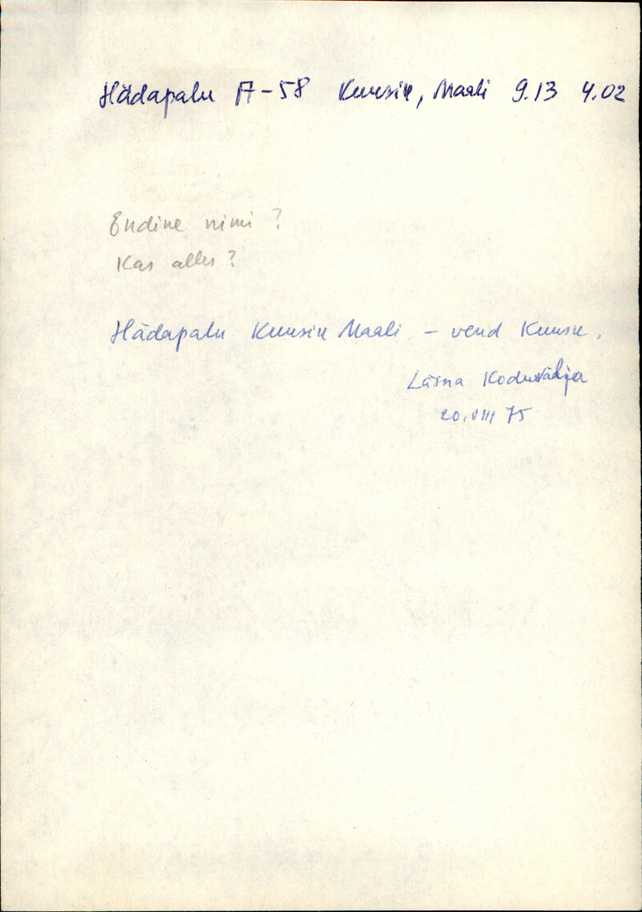 Hädapalu A-58 Kuusik, Maali 9.13 4.02
Endine nimi?
Kas alles?
Hädapalu Kuusik Maali - vend Kuusk.
Läsna Koduvälja
20.VIII 75